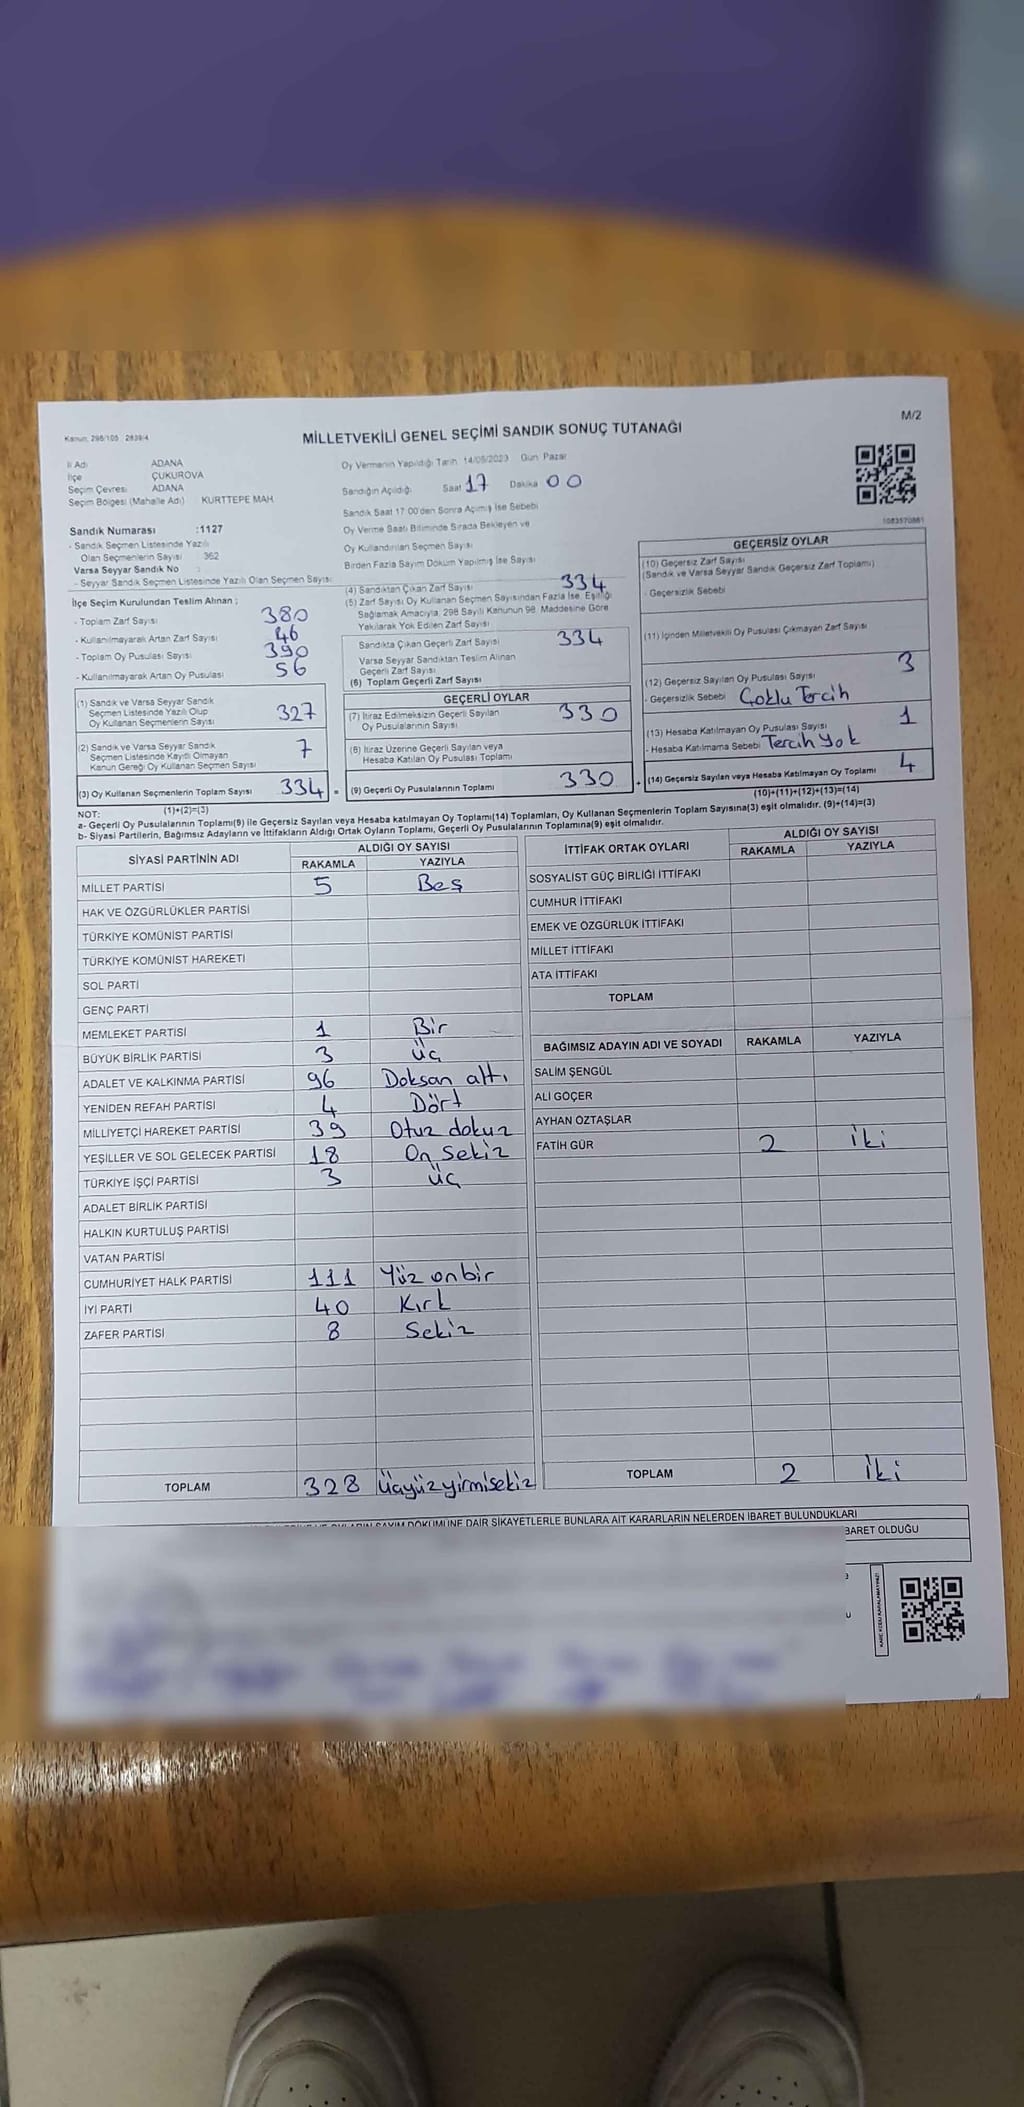 Kanun: 298/105 2839/4
M/2
MİLLETVEKİLİ GENEL SEÇİMİ SANDIK SONUÇ TUTANAĞI
İl Adı ADANA
İlçe ÇUKUROVA
Seçim Çevresi ADANA
Seçim Bölgesi (Mahalle Adı) KURTTEPE MAH.
Sandık Numarası :1127
- Sandık Seçmen Listesinde Yazılı
Olan Seçmenlerin Sayısı 362
Varsa Seyyar Sandık No :
- Seyyar Sandık Seçmen Listesinde Yazılı Olan Seçmen Sayısı
Oy Vermenin Yapıldığı Tarih 14/05/2023 Gün Pazar
Sandığın Açıldığı Saat 17 Dakika 00
Sandık Saat 17:00'den Sonra Açılmış İse Sebebi
Oy Verme Saati Bitiminde Sırada Bekleyen ve
Oy Kullandırılan Seçmen Sayısı
Birden Fazla Sayım Döküm Yapılmış İse Sayısı
1083570861
İlçe Seçim Kurulundan Teslim Alınan :
- Toplam Zarf Sayısı 380
- Kullanılmayarak Artan Zarf Sayısı 46
- Toplam Oy Pusulası Sayısı 390
- Kullanılmayarak Artan Oy Pusulası 56
(1) Sandık ve Varsa Seyyar Sandık
Seçmen Listesinde Yazılı Olup
Oy Kullanan Seçmenlerin Sayısı 327
(2) Sandık ve Varsa Seyyar Sandık
Seçmen Listesinde Kayıtlı Olmayan
Kanun Gereği Oy Kullanan Seçmen Sayısı 7
(3) Oy Kullanan Seçmenlerin Toplam Sayısı 334 =
(1)+(2)=(3)
(4) Sandıktan Çıkan Zarf Sayısı 334
(5) Zarf Sayısı Oy Kullanan Seçmen Sayısından Fazla İse, Eşitliği
Sağlamak Amacıyla, 298 Sayılı Kanunun 98. Maddesine Göre
Yakılarak Yok Edilen Zarf Sayısı
Sandıkta Çıkan Geçerli Zarf Sayısı 334
Varsa Seyyar Sandıktan Teslim Alınan
Geçerli Zarf Sayısı
(6) Toplam Geçerli Zarf Sayısı
GEÇERLİ OYLAR
(7) İtiraz Edilmeksizin Geçerli Sayılan
Oy Pusulalarının Sayısı 330
(8) İtiraz Üzerine Geçerli Sayılan veya
Hesaba Katılan Oy Pusulası Toplamı
(9) Geçerli Oy Pusulalarının Toplamı 330 +
GEÇERSİZ OYLAR
(10) Geçersiz Zarf Sayısı
(Sandık ve Varsa Seyyar Sandık Geçersiz Zarf Toplamı)
- Geçersizlik Sebebi
(11) İçinden Milletvekili Oy Pusulası Çıkmayan Zarf Sayısı
(12) Geçersiz Sayılan Oy Pusulası Sayısı 3
- Geçersizlik Sebebi Çoklu Tercih
(13) Hesaba Katılmayan Oy Pusulası Sayısı 1
- Hesaba Katılmama Sebebi Tercih yok
(14) Geçersiz Sayılan veya Hesaba Katılmayan Oy Toplamı 4
(10)+(11)+(12)+(13)=(14)
NOT:
a- Geçerli Oy Pusulalarının Toplamı(9) ile Geçersiz Sayılan veya Hesaba katılmayan Oy Toplamı(14) Toplamları, Oy Kullanan Seçmenlerin Toplam Sayısına(3) eşit olmalıdır. (9)+(14)=(3)
b- Siyasi Partilerin, Bağımsız Adayların ve İttifakların Aldığı Ortak Oyların Toplamı, Geçerli Oy Pusulalarının Toplamına(9) eşit olmalıdır.
SİYASİ PARTİNİN ADI ALDIĞI OY SAYISI
RAKAMLA YAZIYLA
MİLLET PARTİSİ 5 Beş
HAK VE ÖZGÜRLÜKLER PARTİSİ
TÜRKİYE KOMÜNİST PARTİSİ
TÜRKİYE KOMÜNİST HAREKETİ
SOL PARTİ
GENÇ PARTİ
MEMLEKET PARTİSİ 1 Bir
BÜYÜK BİRLİK PARTİSİ 3 Üç
ADALET VE KALKINMA PARTİSİ 96 Doksan altı
YENİDEN REFAH PARTİSİ 4 Dört
MİLLİYETÇİ HAREKET PARTİSİ 39 Otuz dokuz
YEŞİLLER VE SOL GELECEK PARTİSİ 18 On sekiz
TÜRKİYE İŞÇİ PARTİSİ 3 Üç
ADALET BİRLİK PARTİSİ
HALKIN KURTULUŞ PARTİSİ
VATAN PARTİSİ
CUMHURİYET HALK PARTİSİ 111 Yüz onbir
İYİ PARTİ 40 Kırk
ZAFER PARTİSİ 8 Sekiz
TOPLAM 328 Üçyüzyirmisekiz
İTTİFAK ORTAK OYLARI ALDIĞI OY SAYISI
RAKAMLA YAZIYLA
SOSYALİST GÜÇ BİRLİĞİ İTTİFAKI
CUMHUR İTTİFAKI
EMEK VE ÖZGÜRLÜK İTTİFAKI
MİLLET İTTİFAKI
ATA İTTİFAKI
TOPLAM
BAĞIMSIZ ADAYIN ADI VE SOYADI RAKAMLA YAZIYLA
SALİM ŞENGÜL
ALİ GÖÇER
AYHAN ÖZTAŞLAR
FATİH GÜR 2 İki
TOPLAM 2 İki
SAYIM DÖKÜMÜNE DAİR ŞİKAYETLERLE BUNLARA AİT KARARLARIN NELERDEN İBARET BULUNDUKLARI
BARET OLDUĞU
KARE KODU KARALAMAYINIZ!